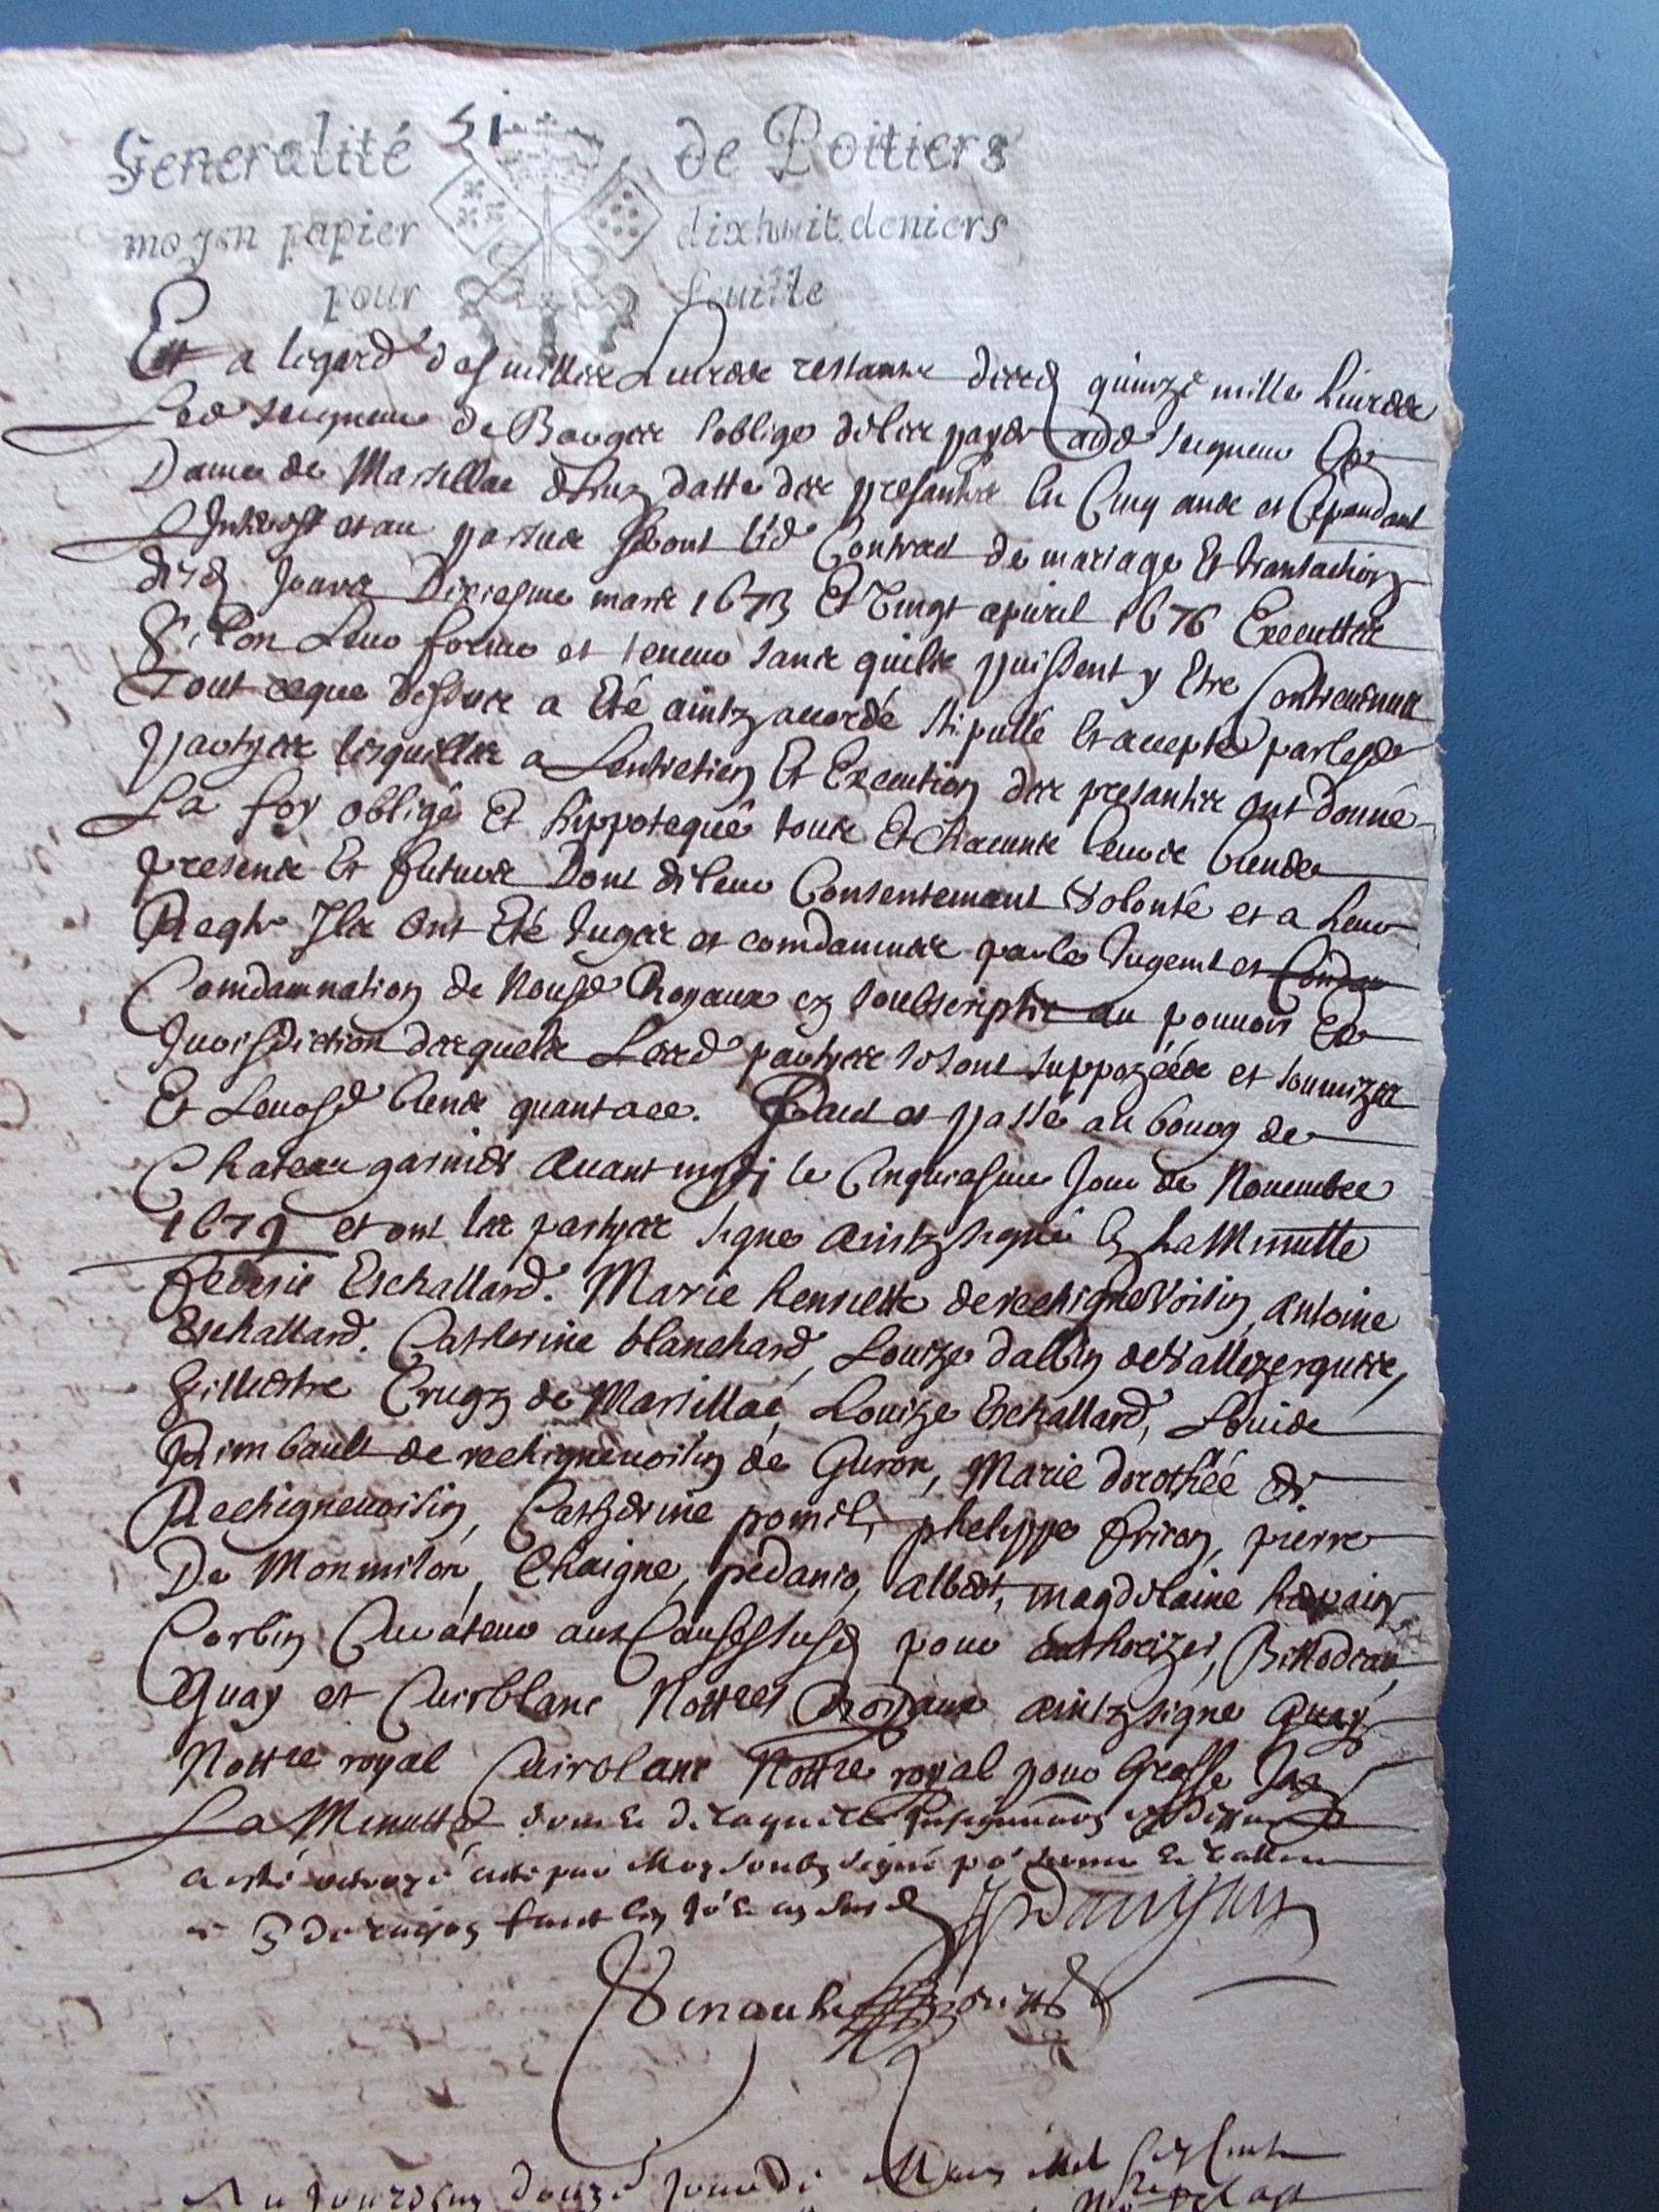 Generalité de Poitiers
moyen papier dixhuit deniers
pour feuille
Et a legard des mille Livres restans desd quinze mille Livres
Led seigneur de Bauger soblige deles payer aud seigneur Et
Dame de Marsillac dhuy datte des presantes En Cinq ans et Cepandant
Linterest et au parsus seront led Contract de mariage Et transaction
desd Jours Dixiesme mars 1673 Et Vingt apvril 1676 Executtés
selon Leur forme et teneur sans quils puissent y Etre Contrevenus
Tout ceque dessus a Eté aintz acordé stipullé Et accepté par lesd
partyes lesquelles a Lentretien Et Execution des presantes ont donné
La foy obligé Et hippotequé tous Et Chacuns leurs biens
presens Et futurs Dont deleur Consentemant Volonté et a Leur
Reqte Ils ont Eté Jugés et comdamnés par le Jugemt et
Comdamnation de Nousd Royaux en soubscripts au pouvoir Et
Jurisdiction desquels Lesd partyes se sont supposéés et soumizes
Et Leursd biens quant a ce. Faict et passé au bourg de
Chateau garnier avant midi le Cinquiesme Jour de Novembre
1679 et ont les partyes signé aintz signé En La Minutte
Federic Eschallard. Marie henriette de rechignevoisin, antoine
Eschallard. Catherine blanchard, Louize dalbin de Vallezergues,
Sillvestre Crugy de Marsillac, Louize Eschallard, Louis
Raimbault de rechignevoisin de Guron, Marie dorothéé de
Rechignevoisin, Catherine phelippe fricon, pierre
De Monmillon, Chaigne, pedanio, albert, magdelaine
Corbin Curateur aux Causes susd pour authorizer, Billodeau
Quay et Cuirblanc Nottres Royaux aintz signé Quay
Nottre royal Cuirblanc Nottre royal pour Grosse Jay
La Minutte